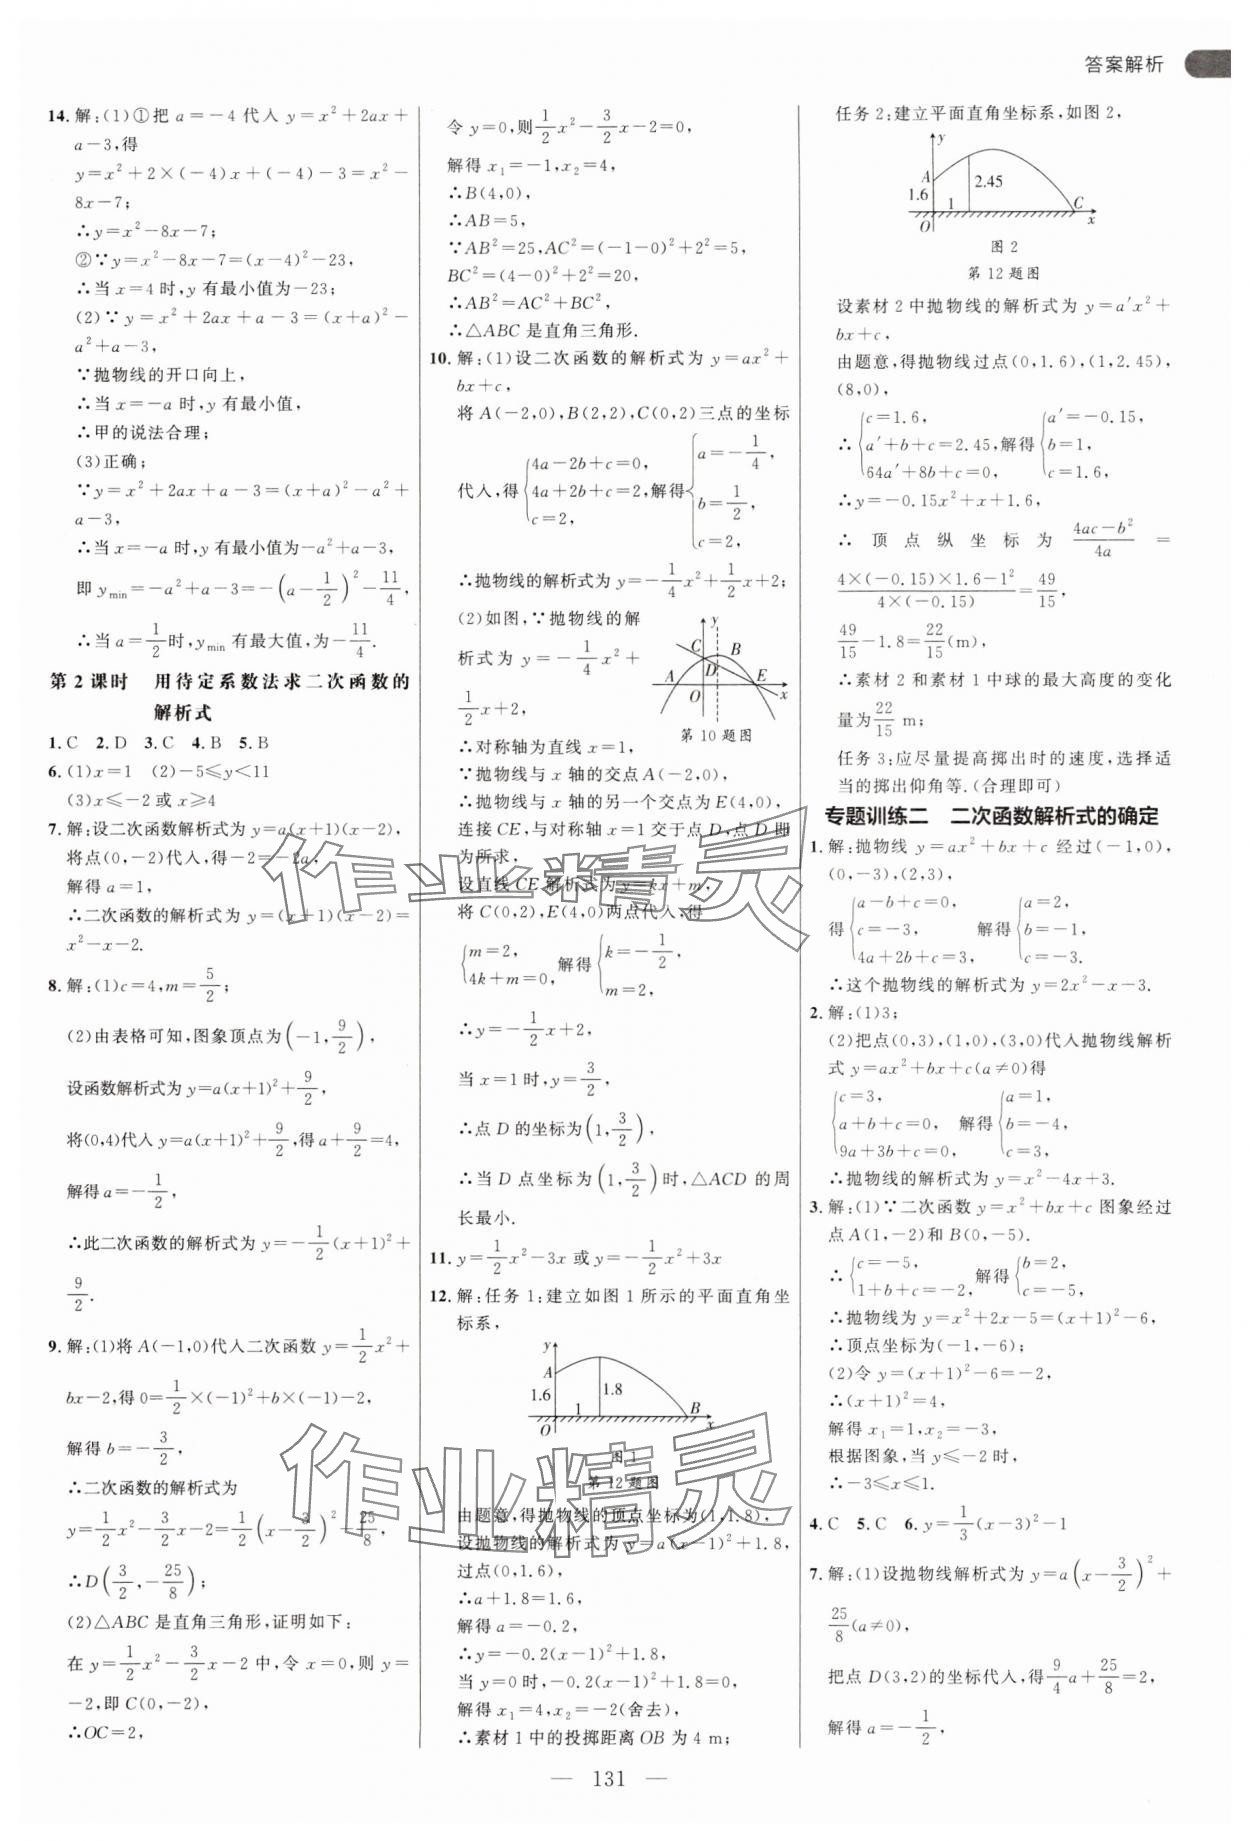 答案解析
14.解:(1)①把 a=-4 代入 y=x²+2ax+
a-3,得
y=x²+2×(-4)x+(-4)-3=x²-
8x-7;
∴y=x²-8x-7;
②∵y=x²-8x-7=(x-4)²-23,
∴当 x=4 时,y 有最小值为-23;
(2)∵y=x²+2ax+a-3=(x+a)²-
a²+a-3,
∵抛物线的开口向上,
∴当 x=-a 时,y 有最小值,
∴甲的说法合理;
(3)正确;
∵y=x²+2ax+a-3=(x+a)²-a²+
a-3,
∴当 x=-a 时,y 有最小值为-a²+a-3,
即 y_min=-a²+a-3=-(a-1/2)²-11/4,
∴当 a=1/2时,y_min 有最大值,为-11/4.
第 2 课时 用待定系数法求二次函数的
解析式
1.C 2.D 3.C 4.B 5.B
6.(1)x=1 (2)-5≤y<11
(3)x≤-2 或 x≥4
7.解:设二次函数解析式为 y=a(x+1)(x-2),
将点(0,-2)代入,得-2=-2a,
解得 a=1,
∴二次函数的解析式为 y=(x+1)(x-2)=
x²-x-2.
8.解:(1)c=4,m=5/2;
(2)由表格可知,图象顶点为(-1,9/2),
设函数解析式为 y=a(x+1)²+9/2,
将(0,4)代入 y=a(x+1)²+9/2,得 a+9/2=4,
解得 a=-1/2,
∴此二次函数的解析式为 y=-1/2(x+1)²+
9/2.
9.解:(1)将 A(-1,0)代入二次函数 y=1/2x²+
bx-2,得 0=1/2×(-1)²+b×(-1)-2,
解得 b=-3/2,
∴二次函数的解析式为
y=1/2x²-3/2x-2=1/2(x-3/2)²-25/8,
∴D(3/2,-25/8);
(2)△ABC 是直角三角形,证明如下:
在 y=1/2x²-3/2x-2 中,令 x=0,则 y=
-2,即 C(0,-2),
∴OC=2,
令 y=0,则1/2x²-3/2x-2=0,
解得 x₁=-1,x₂=4,
∴B(4,0),
∴AB=5,
∵AB²=25,AC²=(-1-0)²+2²=5,
BC²=(4-0)²+2²=20,
∴AB²=AC²+BC²,
∴△ABC 是直角三角形.
10.解:(1)设二次函数的解析式为 y=ax²+
bx+c,
将 A(-2,0),B(2,2),C(0,2)三点的坐标
代入,得{4a-2b+c=0, 4a+2b+c=2, c=2, 解得{a=-1/4, b=1/2, c=2,
∴抛物线的解析式为 y=-1/4x²+1/2x+2;
(2)如图,∵抛物线的解
析式为 y=-1/4x²+
1/2x+2,
y
C B
D
A E
O x
第 10 题图
∴对称轴为直线 x=1,
∵抛物线与 x 轴的交点 A(-2,0),
∴抛物线与 x 轴的另一个交点为 E(4,0),
连接 CE,与对称轴 x=1 交于点 D,点 D 即
为所求,
设直线 CE 解析式为 y=kx+m,
将 C(0,2),E(4,0)两点代入,得
{m=2, 4k+m=0, 解得{k=-1/2, m=2,
∴y=-1/2x+2,
当 x=1 时,y=3/2,
∴点 D 的坐标为(1,3/2),
∴当 D 点坐标为(1,3/2)时,△ACD 的周
长最小.
11.y=1/2x²-3x 或 y=-1/2x²+3x
12.解:任务 1:建立如图 1 所示的平面直角坐
标系,
y
A
1.6 1.8
1 B
O x
图 1
第 12 题图
由题意,得抛物线的顶点坐标为(1,1.8),
设抛物线的解析式为 y=a(x-1)²+1.8,
过点(0,1.6),
∴a+1.8=1.6,
解得 a=-0.2,
∴y=-0.2(x-1)²+1.8,
当 y=0 时,-0.2(x-1)²+1.8=0,
解得 x₁=4,x₂=-2(舍去),
∴素材 1 中的投掷距离 OB 为 4 m;
任务 2:建立平面直角坐标系,如图 2,
y
A
1.6 2.45
1 C
O x
图 2
第 12 题图
设素材 2 中抛物线的解析式为 y=a′x²+
bx+c,
由题意,得抛物线过点(0,1.6),(1,2.45),
(8,0),
∴{c=1.6, a′+b+c=2.45, 64a′+8b+c=0, 解得{a′=-0.15, b=1, c=1.6,
∴y=-0.15x²+x+1.6,
∴顶点纵坐标为 (4ac-b²)/4a =
(4×(-0.15)×1.6-1²)/(4×(-0.15))=49/15,
49/15-1.8=22/15(m),
∴素材 2 和素材 1 中球的最大高度的变化
量为22/15 m;
任务 3:应尽量提高掷出时的速度,选择适
当的掷出仰角等.(合理即可)
专题训练二 二次函数解析式的确定
1.解:抛物线 y=ax²+bx+c 经过(-1,0),
(0,-3),(2,3),
得{a-b+c=0, c=-3, 4a+2b+c=3, 解得{a=2, b=-1, c=-3.
∴这个抛物线的解析式为 y=2x²-x-3.
2.解:(1)3;
(2)把点(0,3),(1,0),(3,0)代入抛物线解析
式 y=ax²+bx+c(a≠0)得
{c=3, a+b+c=0, 9a+3b+c=0, 解得{a=1, b=-4, c=3.
∴抛物线的解析式为 y=x²-4x+3.
3.解:(1)∵二次函数 y=x²+bx+c 图象经过
点 A(1,-2)和 B(0,-5).
∴{c=-5, 1+b+c=-2, 解得{b=2, c=-5,
∴抛物线为 y=x²+2x-5=(x+1)²-6,
∴顶点坐标为(-1,-6);
(2)令 y=(x+1)²-6=-2,
∴(x+1)²=4,
解得 x₁=1,x₂=-3,
根据图象,当 y≤-2 时,
∴-3≤x≤1.
4.C 5.C 6.y=1/3(x-3)²-1
7.解:(1)设抛物线解析式为 y=a(x-3/2)²+
25/8(a≠0),
把点 D(3,2)的坐标代入,得9/4a+25/8=2,
解得 a=-1/2,
— 131 —
作业精灵
作业精灵